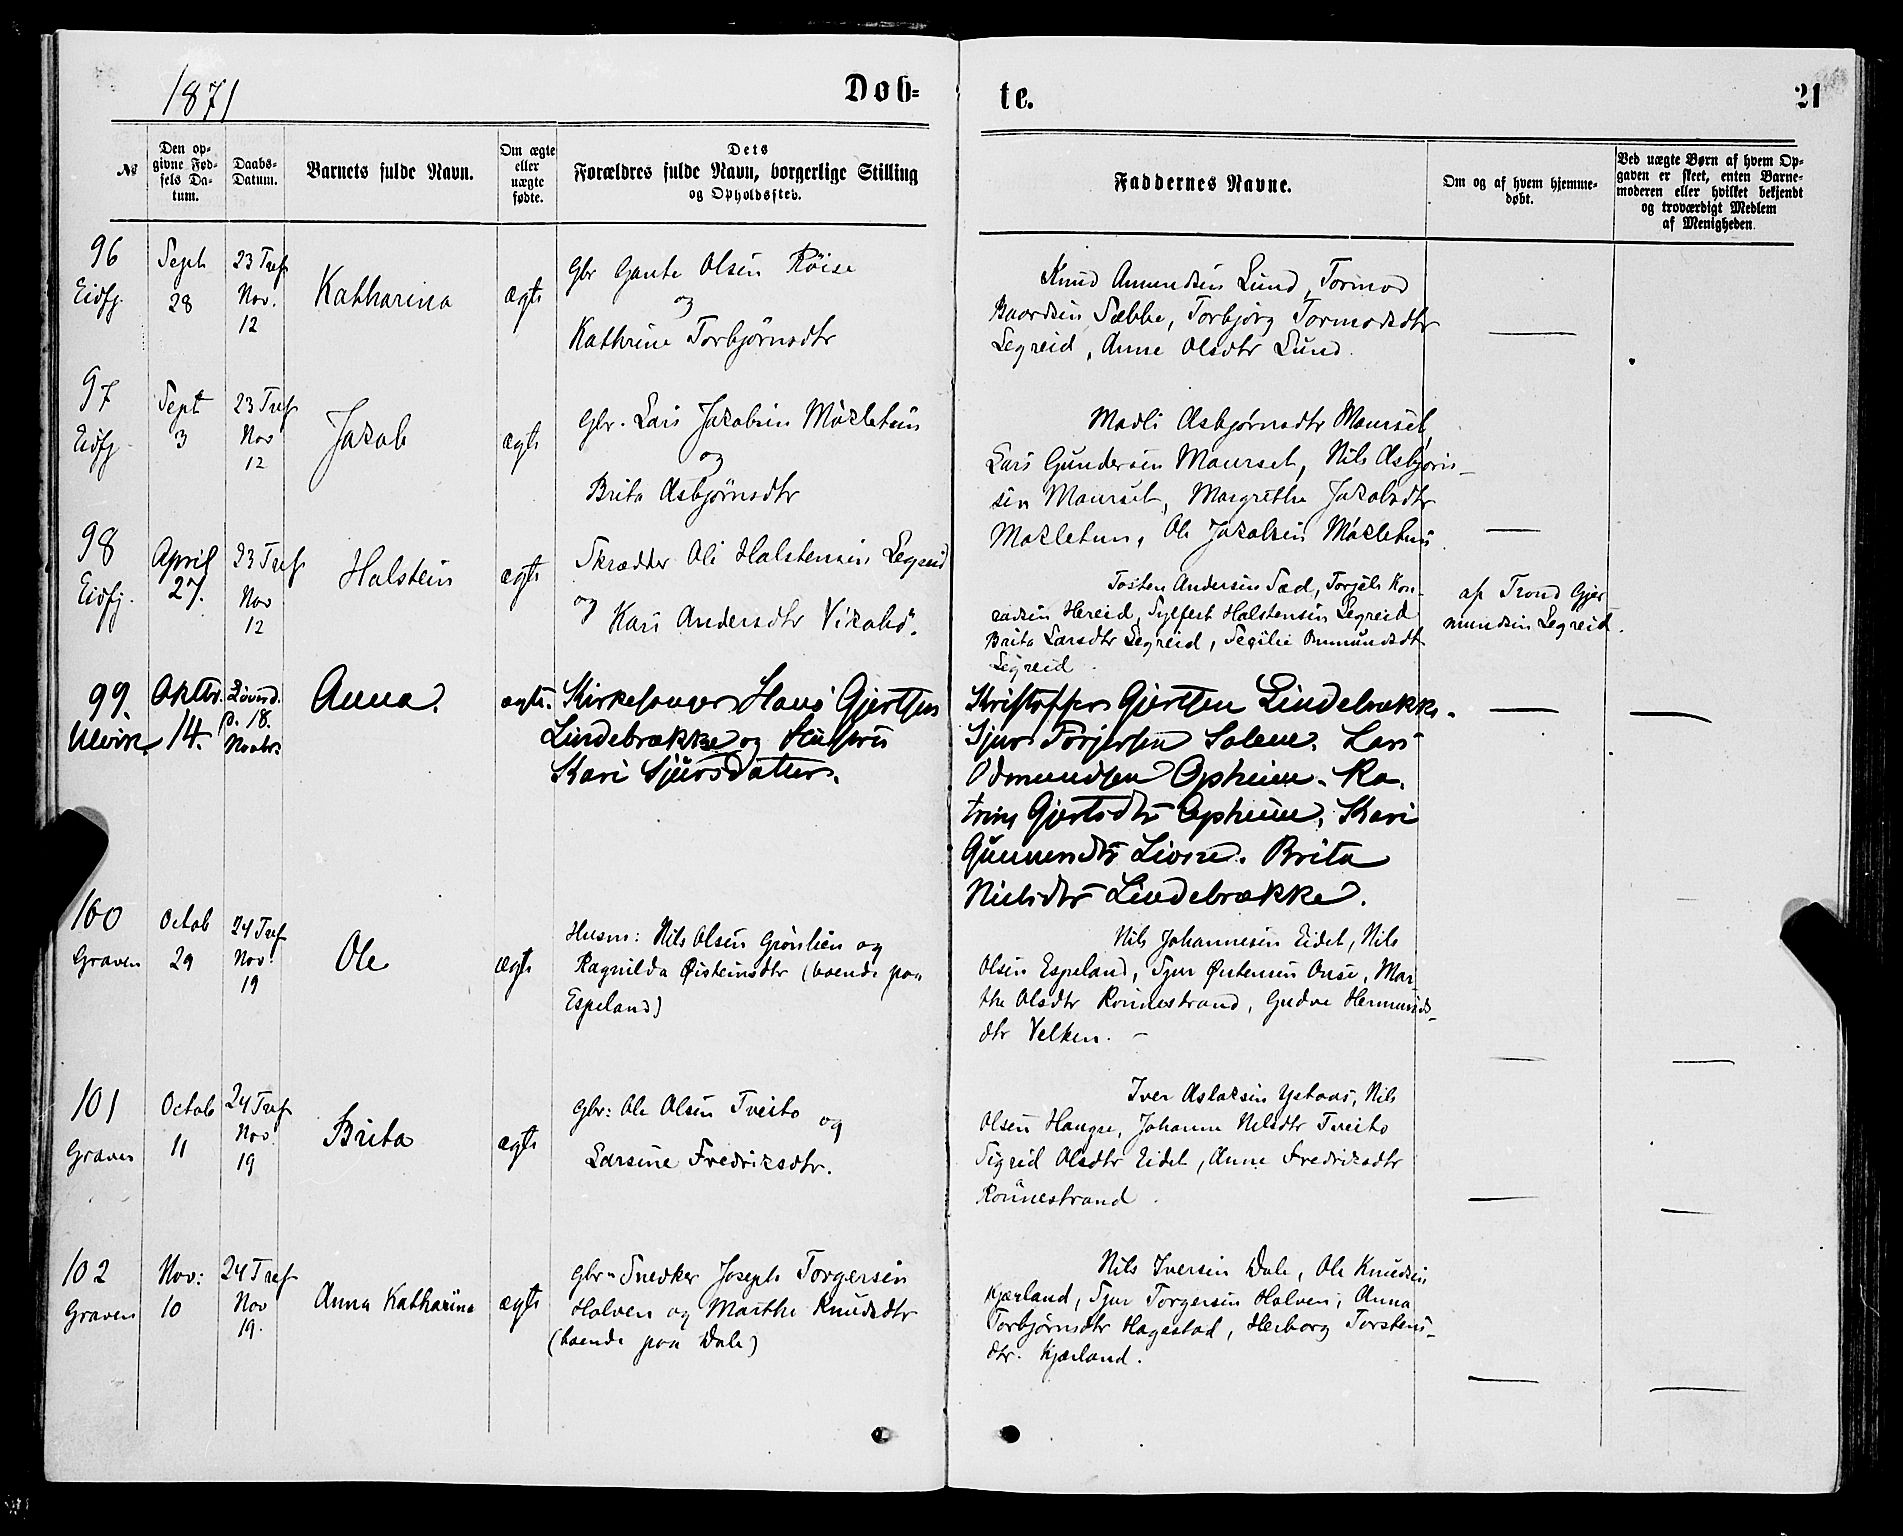 1871
Døb=
te.
21
№
Den op-
givne Fød-
sels Da-
tum.
Daabs-
Datum.
Barnets fulde Navn.
Om ægte
eller
uægte
fødte.
Dets
Forældres fulde Navn, borgerlige Stilling
og Opholdssted.
Faddernes Navne.
Om og af hvem hjemme-
døbt.
Ved uægte Børn af hvem Op-
gaven er skeet, enten Barne-
moderen eller hvilket bekjendt
og troværdigt Medlem
af Menigheden.
96
Eidfj.
Sept
28
23 Tref
Nov.
12
Katharina
ægte
Gbr Gaute Olsen Røise
og
Kathrine Torbjørnsdtr
Knud Amundsen Lund, Tormod
Baardsen Sæbbe, Torbjørg Tormodsdtr
Legreid, Anne Olsdtr Lund.
97
Eidfj.
Sept
3
23 Tref
Nov
12
Jakob
ægte
Gbr. Lars Jakobsen Møkletun
og
Brita Asbjørnsdtr
Madli Asbjørnsdtr Maurset,
Lars Gundersen Maurset, Nils Asbjørn-
sen Maurset, Margrethe Jakobsdtr
Møkletun, Ole Jakobsen Møkletun.
98
Eidfj.
April
27.
23 Tref
Nov
12
Halstein
ægte
Skrædder Ole Halstensen Legreid
og
Kari Andersdtr Vikabø.
Tosten Andersen Sæd, Torjels Kon-
radsen Hereid, Sylfest Halstensen Legreid
Brita Larsdtr Legreid, Secilie Ommundsdtr
Legreid.
af Trond Gjer
mundsen Legreid.
99.
Ulvik.
Oktbr.
14.
p. 18.
Novbr.
Anna.
ægte.
Kirkesanger Hans Gjertsen
Lindebrække og Hustru
Kari Sjursdatter.
Kristoffer Gjertsen Lindebrække.
Sjur Torjersen Solem. Lars
Odmundsen Opheim. Ka-
trine Gjertsdtr Opheim, Kari
Gunnersdtr Lione. Brita
Nielsdtr Lindebrække.
100
Graven
Octob
29
24 Tref
Nov:
19
Ole
ægte
Husm: Nils Olsen Grønlien og
Ragnilda Øisteinsdtr (boende paa
Espeland)
Nils Johannesen Eidet, Nils
Olsen Espeland, Sjur Østensen Onse, Mar-
the Olsdtr Rønnestrand, Gudve Hermunds-
dtr Velken. –
101
Graven
Octob
11
24 Tref
Nov.
19
Brita
ægte
Gbr: Ole Olsen Tveito
og
Larsine Fredriksdtr.
Iver Aslaksen Ystaas, Nils
Olsen Haugse, Johanne Nilsdtr Tveito
Sigrid Olsdtr Eidet, Anne Fredriksdtr
Rønnestrand.
102
Graven
Nov:
10
24 Tref
Nov
19.
Anna Katharina
ægte
Gbr = Snedker Joseph Torgersen
Halven og Marthe Knudsdtr
(boende paa Dale)
Nils Iversen Dale, Ole Knudsen
Kjærland, Sjur Torgersen Halven, Anna
Torbjørnsdtr Hagestad, Herborg Torstens-
dtr. Kjærland.